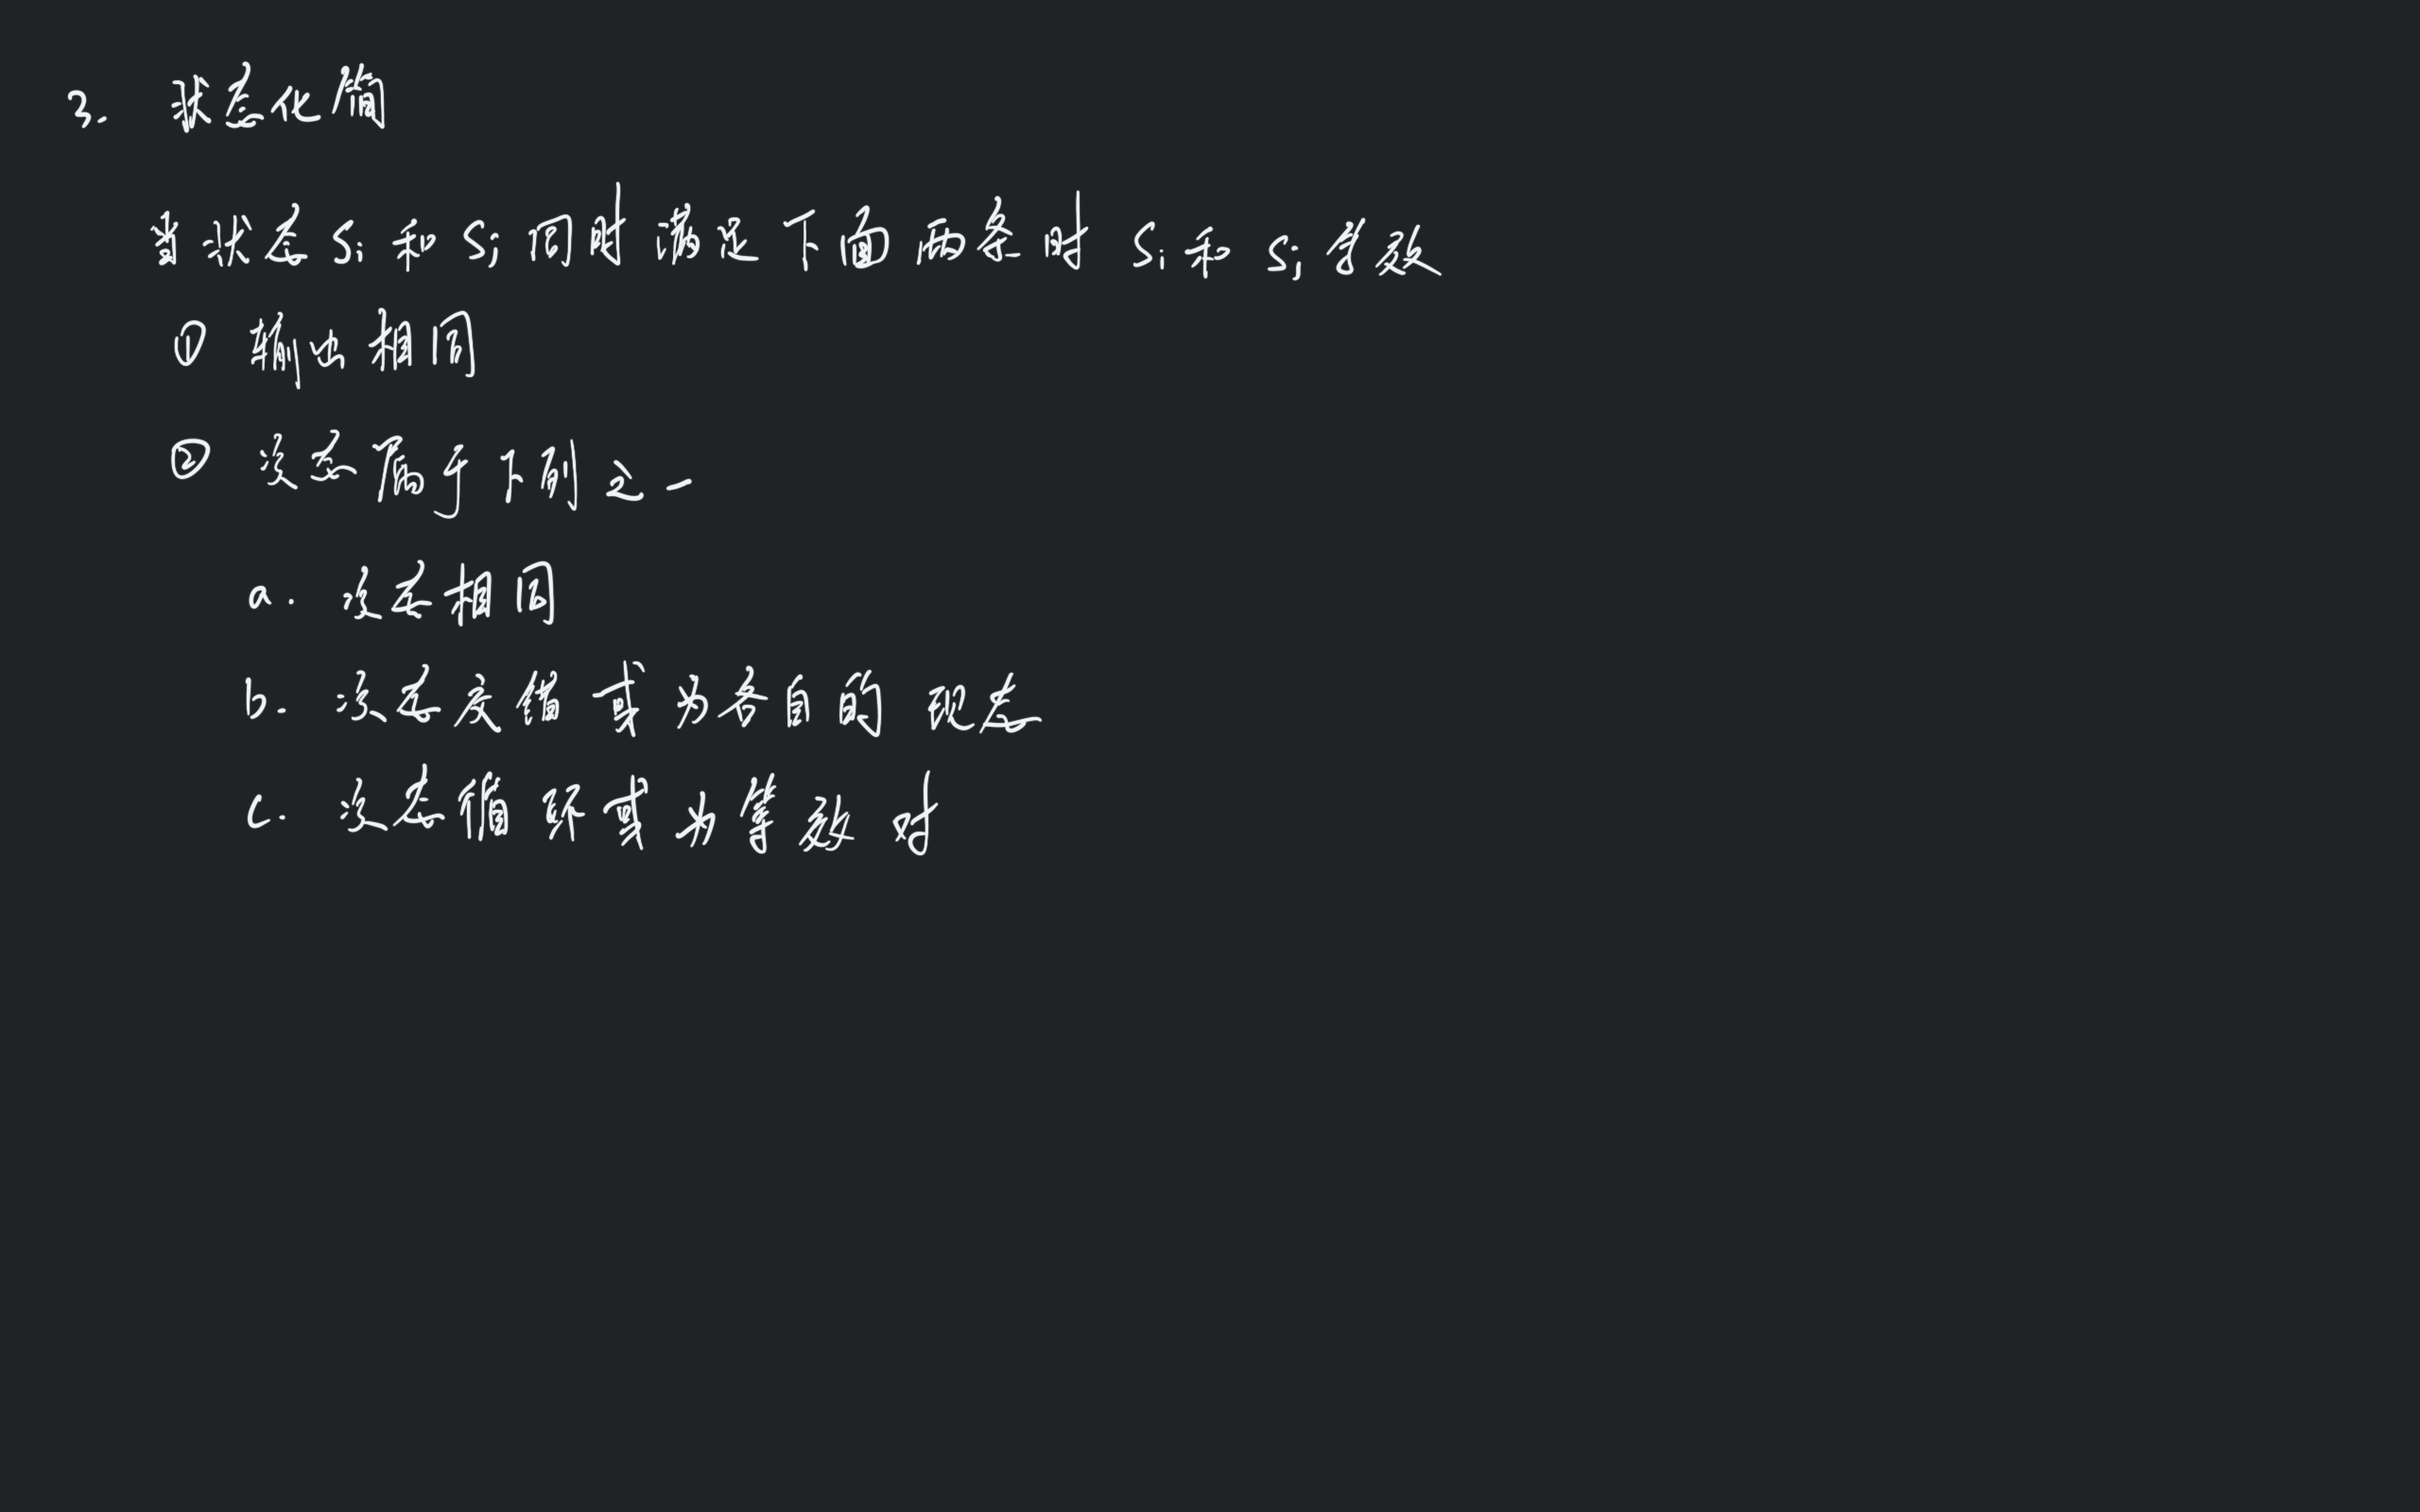 3. 状态化简
当状态Si和Sj同时满足下面两条时 Si和Sj等效
① 输出相同
② 次态属于下列之一
a. 次态相同
b. 次态交错或为各自的现态
c. 次态循环或为等效对